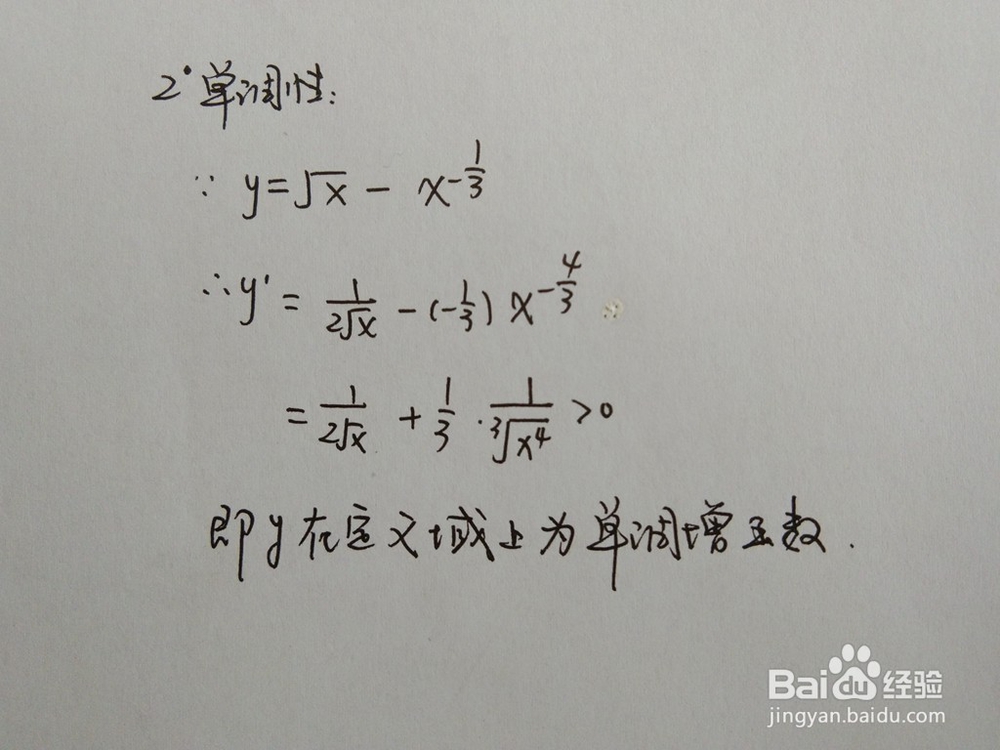 2° 单调性:
∵ y=√x - x^{-1/3}
∴ y' = 1/(2√x) - (-1/3) x^{-4/3}
= 1/(2√x) + 1/3 · 1/∛(x⁴) >0
即y在定义域上为单调增函数.
Baidu经验
jingyan.baidu.com